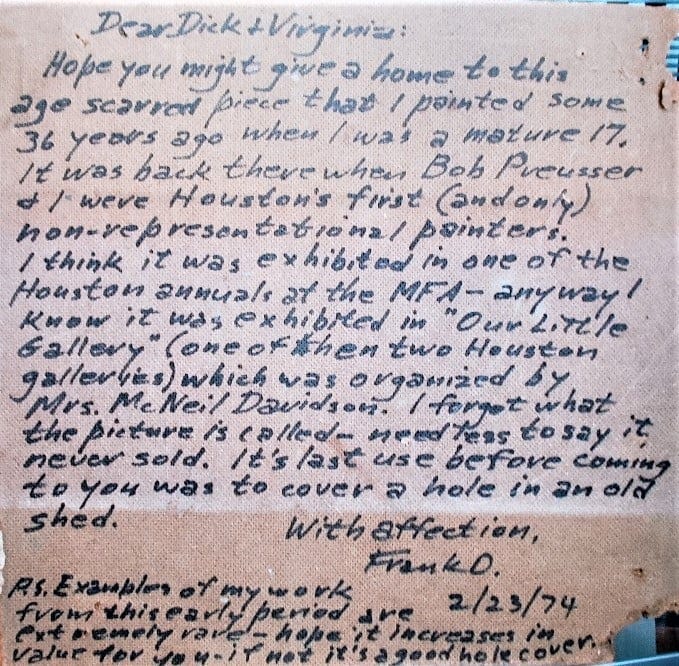 Dear Dick + Virginia:
Hope you might give a home to this
age scarred piece that I painted some
36 years ago when I was a mature 17.
It was back there when Bob Preusser
+ I were Houston's first (and only)
non-representational painters.
I think it was exhibited in one of the
Houston annuals at the MFA - anyway I
know it was exhibited in "Our Little
Gallery" (one of then two Houston
galleries) which was organized by
Mrs. McNeil Davidson. I forget what
the picture is called - needless to say it
never sold. It's last use before coming
to you was to cover a hole in an old
shed.
With affection,
Frank D.
2/23/74
P.S. Examples of my work
from this early period are
extremely rare - hope it increases in
value for you - if not it's a good hole cover.